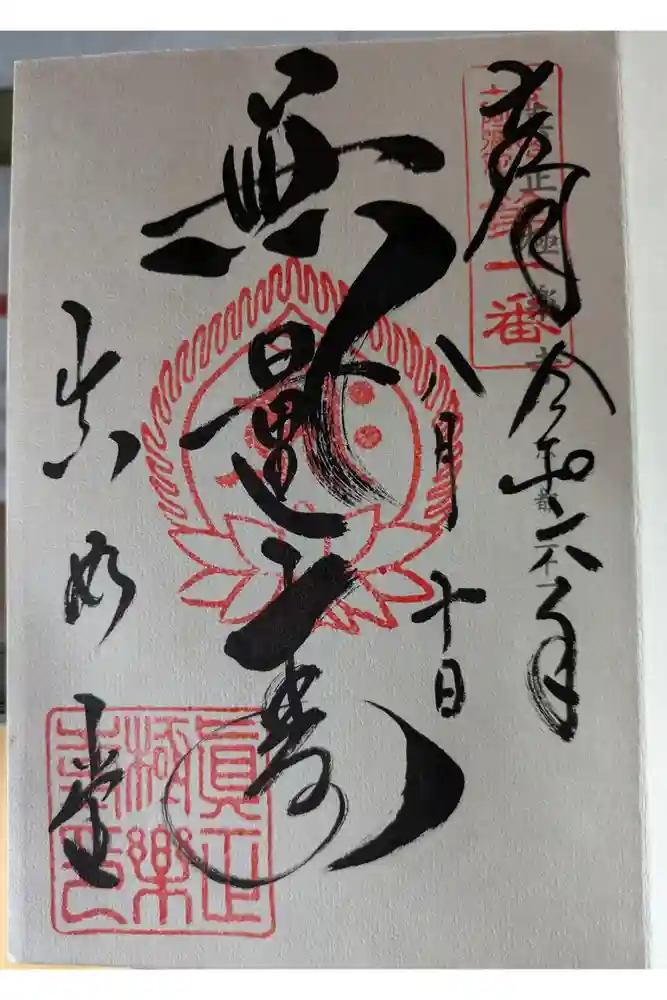 奉拝
令和六年
八月
十日
第一番
無量寿
真如堂
眞正
極樂
寺印